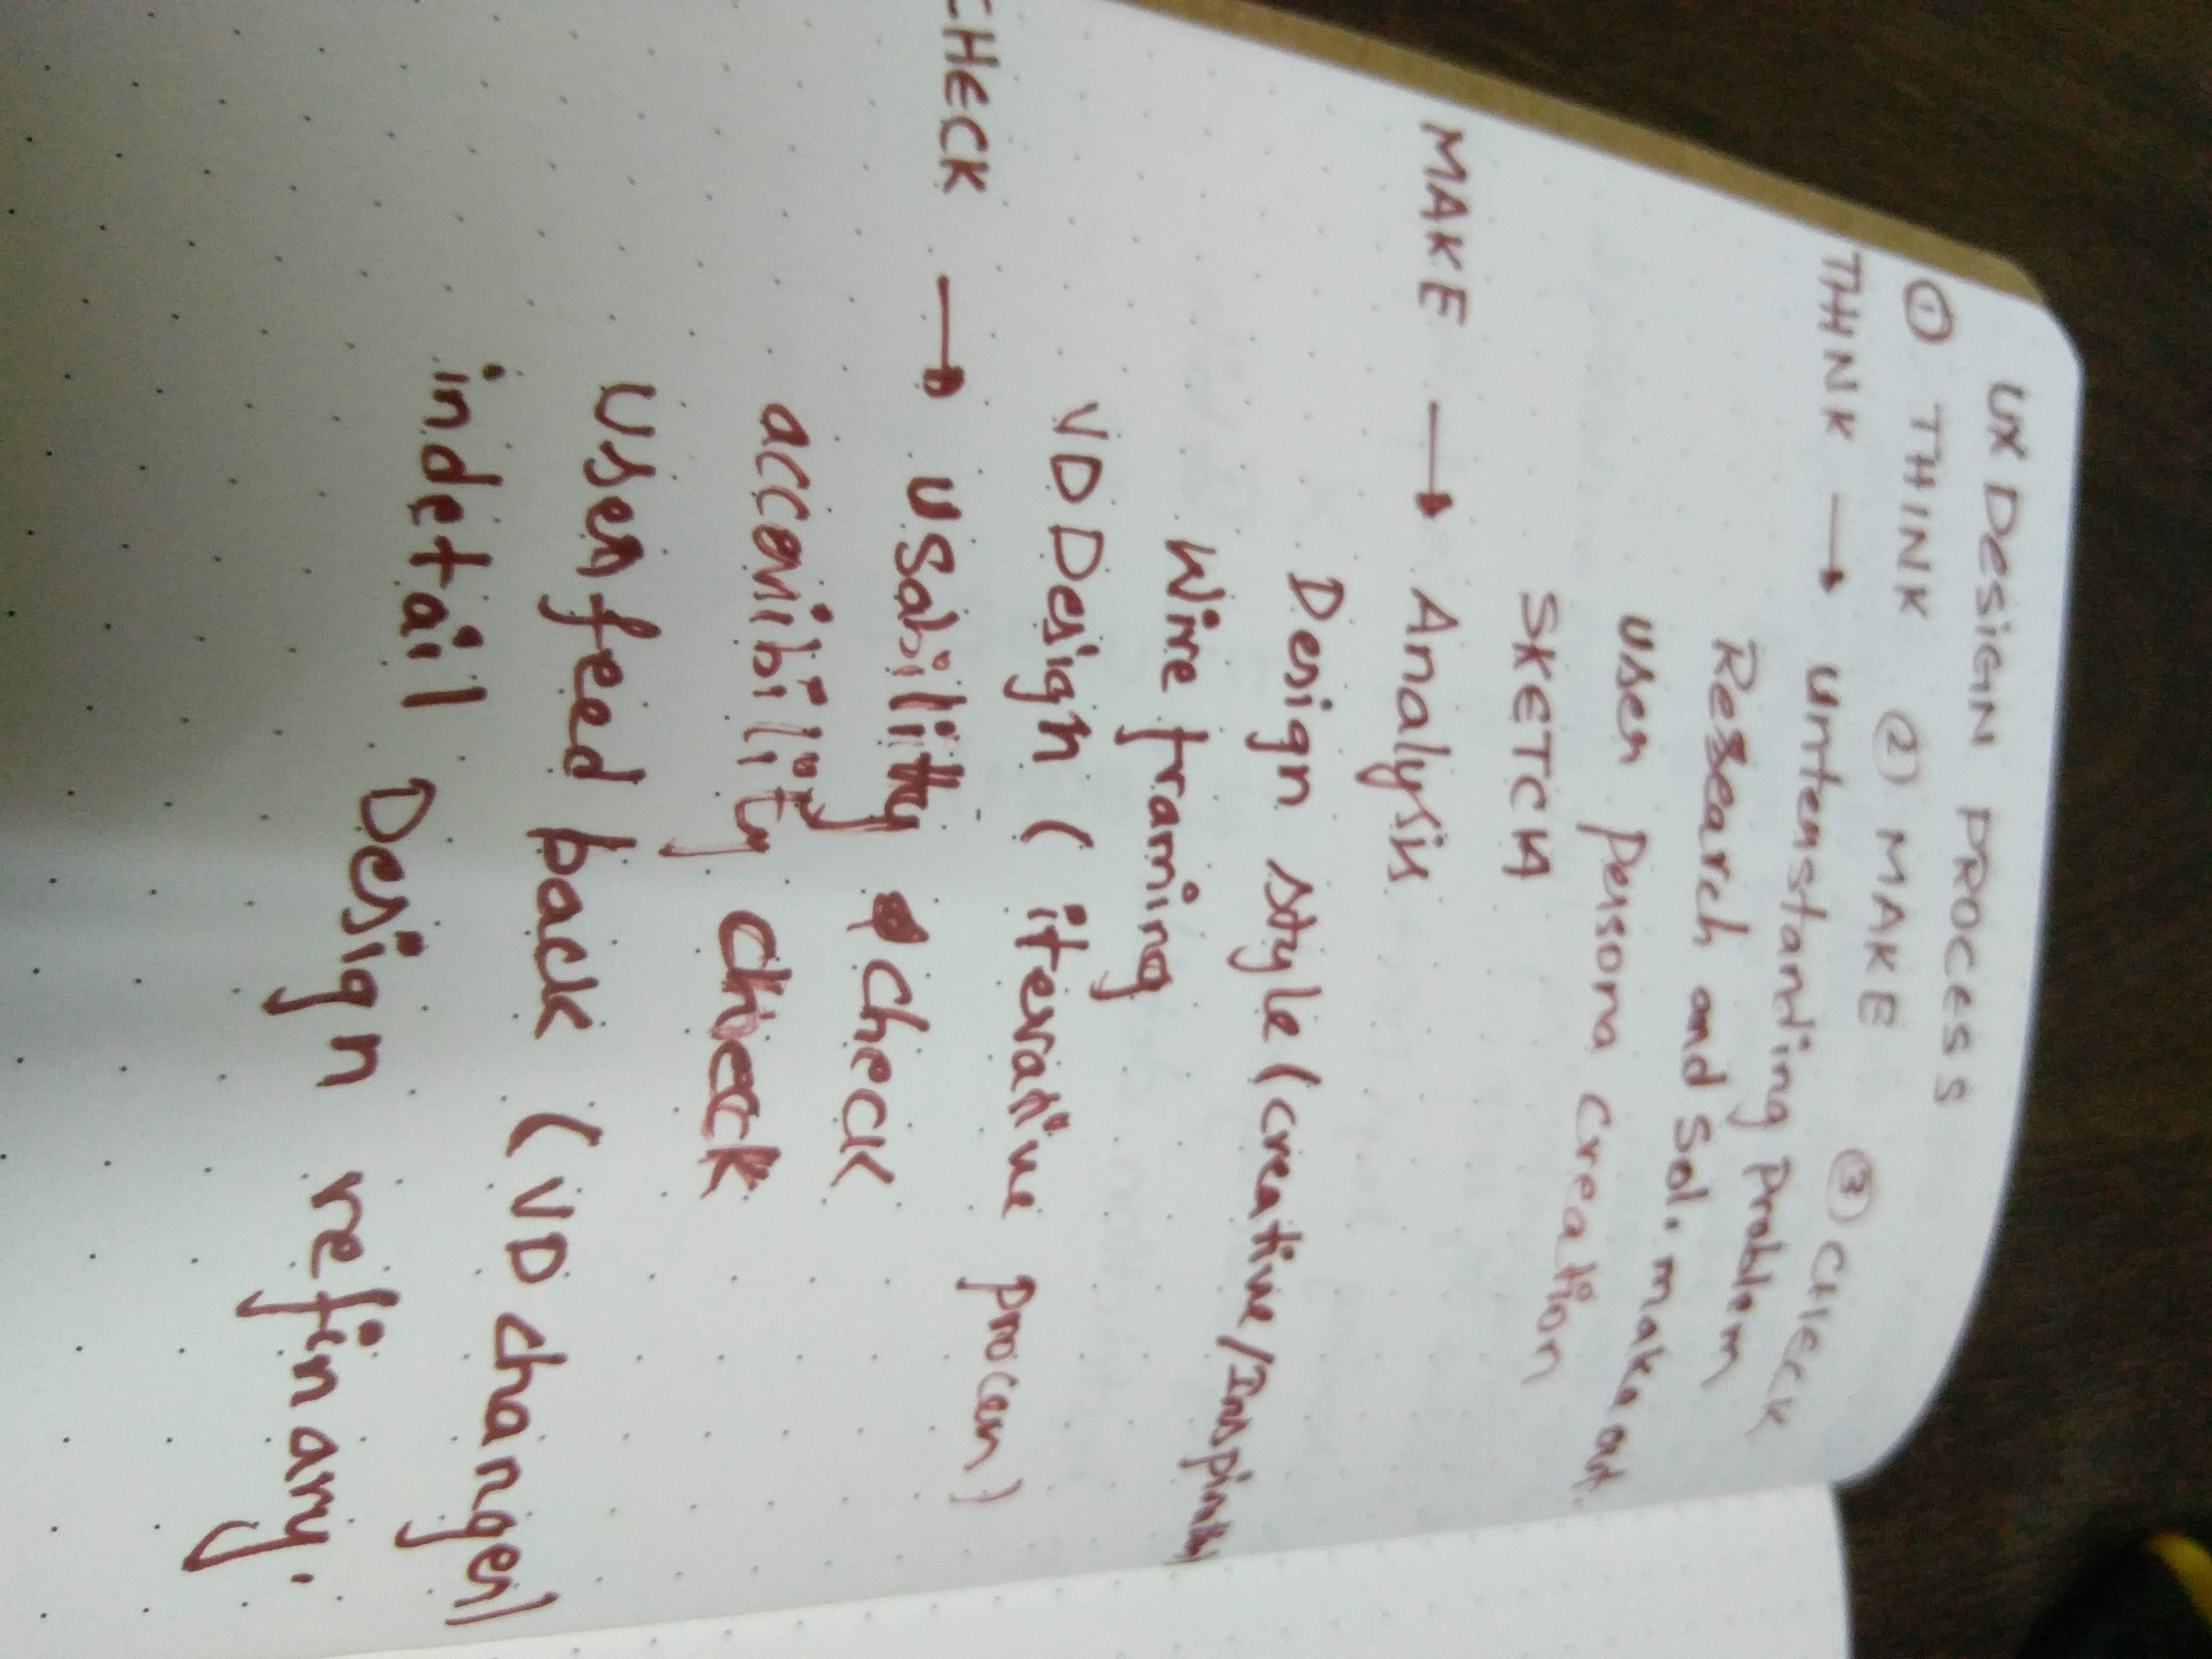 UX DESIGN PROCESS
① THINK ② MAKE ③ CHECK
THINK → Understanding Problem
Research and Sol. make out.
User persona creation
SKETCH
MAKE → Analysis
Design style (creative/
Wire framing
VD Design ( iterative process)
CHECK → Usability check
accessibility check
User feed back (VD changes)
indetail Design refinary.